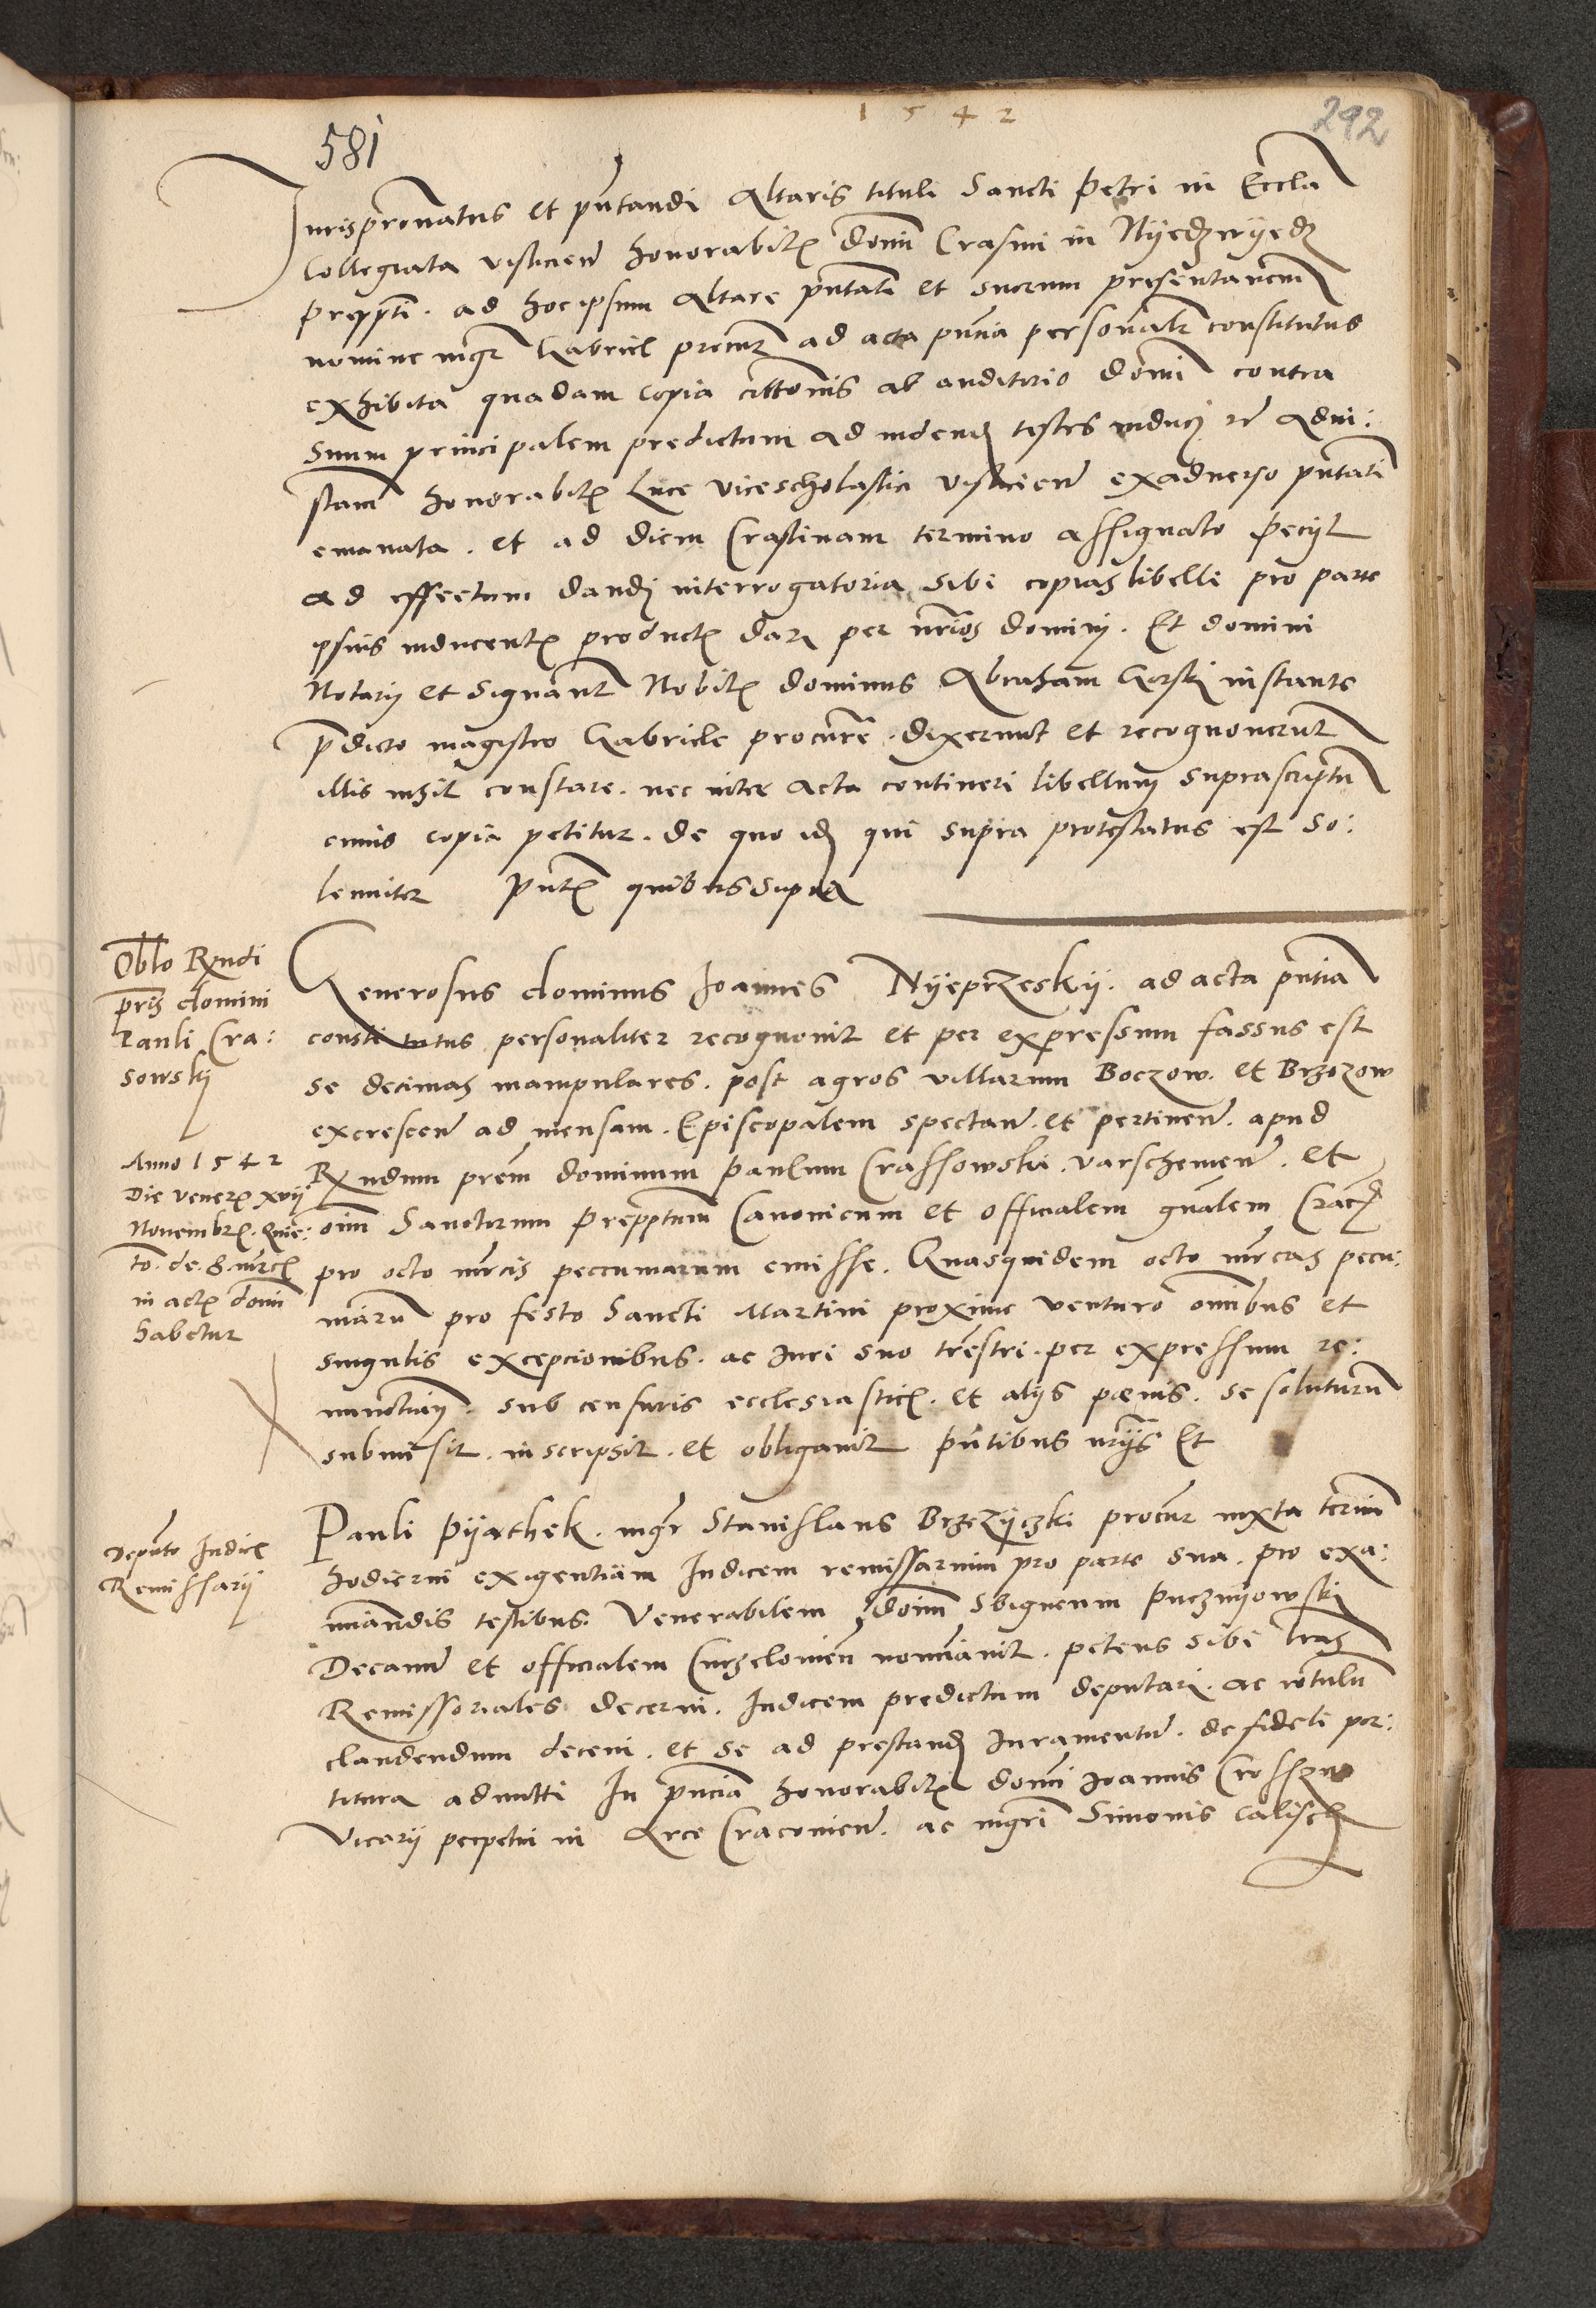 1542
292
581
Jurispronatus et pntandi Altaris tituli Sancti Petri in Eccla
Collegiata visliciens honorabilis domini Erasmi in Nyedzwyedz
preppti. ad hoc ipsum Altare pntati et suorum presentancium
nomine mgr Gabriel procur ad acta pntia personalr constitutus
exhibita quadam copia cittonis ab auditorio domini contra
Suum principalem predictum ad testes ad
stam honorabilis Luce vicescholastici visliciens exadverso pntati
emanata. et ad diem Crastinam termino assignato peciit
ad effectum dandi interrogatoria sibi copias libelli pro parte
ipsius inducentis productis dari per nrios domini. Et domini
Notarij et Signanter Nobilis dominus Abraham Gorski instante
pdicto magistro Gabriele procure. dixerunt et recognoverunt
illis nihil constare. nec inter Acta contineri libellum suprascriptum
cuius copia petitur. de quo idem qui supra protestatus est so:
lenniter pntibus quibus supra
Oblo Rxndi
pris domini
Pauli Cra:
sowskij
Generosus dominus Joannes Nyeprzeskij. ad acta pntia
constitutus personaliter recognovit et per expressum fassus est
se decimas manipulares. post agros villarum Boczow. et Brzozow
excrescen ad mensam. Episcopalem spectan. et pertinen. apud
Rxndum prem dominum Paulum Crassowski. varschevien. et
Anno 1542
Die veneris xvij
Novembris. Quie:
to. de. 8. mrcis
in actis domi
habetur
oim Sanctorum preppitum Canonicum et officialem gnalem Crac
pro octo mrcis peccuniarum emisse. Quasquidem octo mrcas pecu:
niaru pro festo Sancti Martini proxime venturo omibus et
singulis excepcionibus. ac Juri suo trestri. per expressum re:
nunctians. sub censuris ecclesiasticis. et alijs poenis. se soluturu
submisit. inscripsit. et obligavit pntibus nrijs Et
Deputo Judicis
Remissarij
Pauli Pyathek. mgr Stanislaus Brzezyczki procur iuxta termini
hodierni exigentiam Judicem remissarium pro parte sua. pro exa:
minandis testibus. Venerabilem domi Sbigneum Puczniowski
Decanu et officialem Curzelovien nominavit. petens sibi lras
Remissoriales decerni. Judicem predictum deputari. ac rotulu
claudendum decerni. et se ad prestand Juramentu. de fideli por:
titura admitti In pncia honorabilis domi Joannis
Vicarij perpetui in Arce Cracovien. ac mgri Simonis Calisch